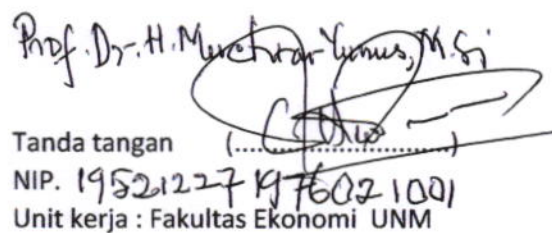 Prof. Dr. H. Muchtar Yunus, M.Si
Tanda tangan (........................)
NIP. 19521227 197602 1001
Unit kerja : Fakultas Ekonomi UNM